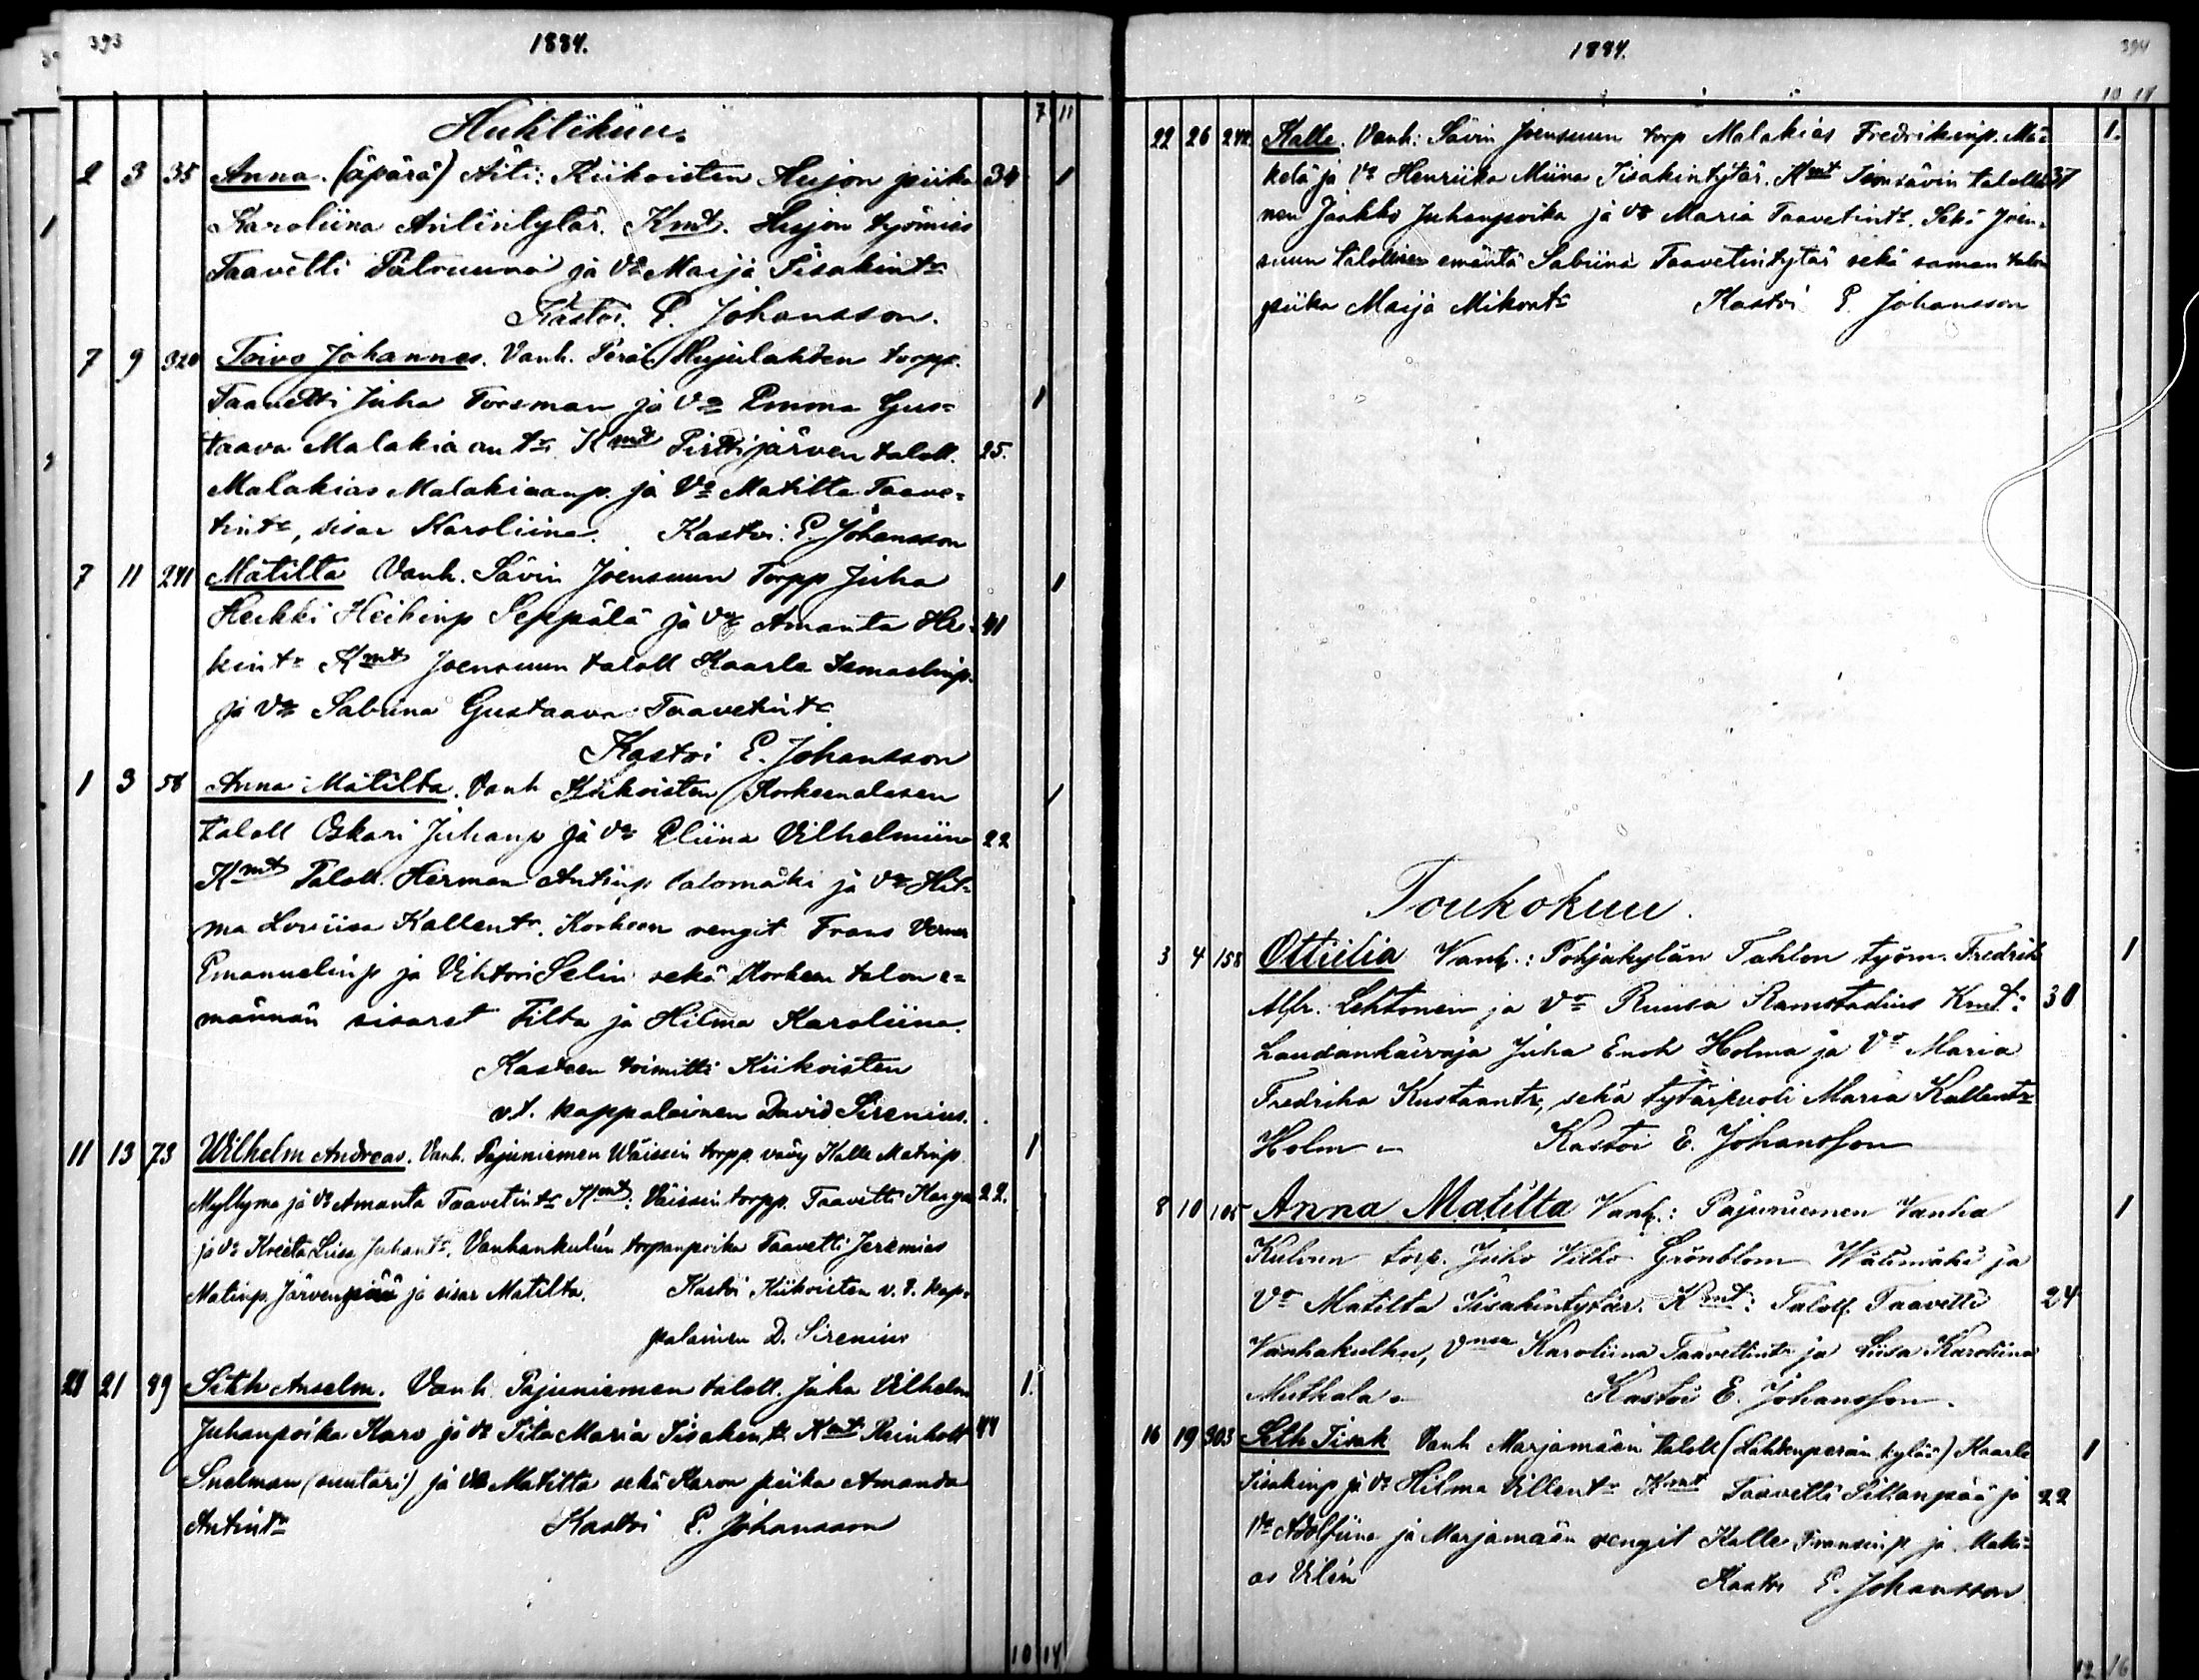 393
1884.
7 11
Huhtikuu.
2 3 35 Anna. (äpärä) Äiti: Kiikoisten Hujon piika 34 1
1 Karoliina Antintytär. Kmt. Hujon työmies
Taavetti Patruuna ja Vo Maija Iisakintr
Kastoi. E. Johansson.
7 9 320 Toivo Johannes. Vanh. Perän Hujulahden torpp.
Taavetti Juha Forsman ja Vo Emma Gus= 1
taava Malakiaantr. Kmt Pirttijärven taloll. 25.
Malakias Malakiaanp. ja Vo Matilta Taave=
tintr, sisar Karoliina. Kastoi: E. Johansson
7 11 241 Matilta Vanh. Sävin Joensuun Torpp Juha 1
Heikki Heikinp Seppälä ja Vo Amanta He= 41
kintr Kmt Joensuun taloll Kaarle
ja Vo Sabiina Gustaava Taavetintr
Kastoi E. Johansson
1 3 58 Anna Matilta. Vanh Kiikoisten Korkeenalasen 1
taloll Oskari Juhanp ja Vo Eliina Vilhelmiina 22
Kmt Taloll. Herman Antinp. Talomäki ja Vo Hil=
ma Loviisa Kallentr. Korkeen rengit Frans Verner
Emanuelinp ja Vihtori Selin sekä Korkeen talon e=
männän sisaret Tilta ja Hilma Karoliina.
Kasteen toimitti Kiikoisten
v.t. kappalainen David Sirenius.
11 13 73 Wilhelm Andreas. Vanh. Pajuniemen Wäissin torpp. vävy Kalle Matinp. 1
Myllymä ja Vo Amanta Taavetintr Kmt: Väissin torpp. Taavetti 22.
ja Vo Kreeta Liisa Juhantr. Vanhankulun torpanpoika Taavetti Jeremias
Matinp. Järvenpää ja sisar Matilta. Kastoi Kiikoisten v. t. kap=
palainen D. Sirenius
21 89 Seth Anselm. Vanh. Pajuniemen taloll. Juha Vilhelm 1.
Juhanpoika Karo ja Vo Iita Maria Iisakintr. Kmt Reinholt 44
Snelman (suutari) ja Vo Matilta sekä Karon piika Amanda
Antintr Kastoi E. Johansson
10 14
1884.
394
10 14
22 26 242. Kalle. Vanh: Sävin Joensuun torp Malakias Fredrikinp. Mä= 1.
kelä ja Vo Henriika Miina Iisakintytär. Kmt talolli 37
nen Jaakko Juhanpoika ja Vo Maria Taavetintr. Sekä Joen=
suun talollisen emäntä Sabiina Taavetintytär sekä saman talon
piika Maija Mikontr Kastoi E. Johansson
Toukokuu.
3 4 158 Ottilia Vanh.: Pohjakylän Tahlon työm. Fredrik 1
Alfr. Lehtonen ja Vo Ruusa Ramstadius Kmt: 30
Haudankaivaja Juha Enok Holma ja Vo Maria
Fredrika Kustaantr, sekä tytärpuoli Maria Kallentr
Holm Kastoi E. Johansson
8 10 105 Anna Matilta Vanh.: Pajuniemen Vanha 1
Kulun torp. Juho Vilho Grönblom Wälimäki ja
Vo Matilta Iisakintytär. Kmt: Taloll. Taavetti 24
Vanhakulku, Vmsa Karoliina Taavetintr ja Liisa Karoliina
Muthala Kastoi E. Johansson.
16 19 303 Seth Iisak Vanh Marjamään taloll (Lahdenperän kylää) Kaarle 1
Iisakinp ja Vo Hilma Villentr Kmt Taavetti Sillanpää ja 22
Vo Adolfiina ja Marjamään rengit Kalle Fransinp ja Maki=
as Vilén Kastoi E. Johansson
12 16